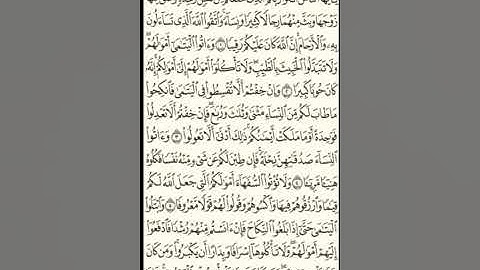 زَوْجَهَا وَبَثَّ مِنْهُمَا رِجَالًا كَثِيرًا وَنِسَآءً ۚ وَٱتَّقُوا۟ ٱللَّهَ ٱلَّذِى تَسَآءَلُونَ
بِهِۦ وَٱلْأَرْحَامَ ۚ إِنَّ ٱللَّهَ كَانَ عَلَيْكُمْ رَقِيبًا ١ وَءَاتُوا۟ ٱلْيَتَٰمَىٰٓ أَمْوَٰلَهُمْ ۖ
وَلَا تَتَبَدَّلُوا۟ ٱلْخَبِيثَ بِٱلطَّيِّبِ ۖ وَلَا تَأْكُلُوٓا۟ أَمْوَٰلَهُمْ إِلَىٰٓ أَمْوَٰلِكُمْ ۚ إِنَّهُۥ
كَانَ حُوبًا كَبِيرًا ٢ وَإِنْ خِفْتُمْ أَلَّا تُقْسِطُوا۟ فِى ٱلْيَتَٰمَىٰ فَٱنكِحُوا۟
مَا طَابَ لَكُم مِّنَ ٱلنِّسَآءِ مَثْنَىٰ وَثُلَٰثَ وَرُبَٰعَ ۖ فَإِنْ خِفْتُمْ أَلَّا تَعْدِلُوا۟
فَوَٰحِدَةً أَوْ مَا مَلَكَتْ أَيْمَٰنُكُمْ ۚ ذَٰلِكَ أَدْنَىٰٓ أَلَّا تَعُولُوا۟ ٣ وَءَاتُوا۟
ٱلنِّسَآءَ صَدُقَٰتِهِنَّ نِحْلَةً ۚ فَإِن طِبْنَ لَكُمْ عَن شَىْءٍ مِّنْهُ نَفْسًا فَكُلُوهُ
هَنِيٓـًٔا مَّرِيٓـًٔا ٤ وَلَا تُؤْتُوا۟ ٱلسُّفَهَآءَ أَمْوَٰلَكُمُ ٱلَّتِى جَعَلَ ٱللَّهُ لَكُمْ
قِيَٰمًا وَٱرْزُقُوهُمْ فِيهَا وَٱكْسُوهُمْ وَقُولُوا۟ لَهُمْ قَوْلًا مَّعْرُوفًا ٥ وَٱبْتَلُوا۟
ٱلْيَتَٰمَىٰ حَتَّىٰٓ إِذَا بَلَغُوا۟ ٱلنِّكَاحَ فَإِنْ ءَانَسْتُم مِّنْهُمْ رُشْدًا فَٱدْفَعُوٓا۟
إِلَيْهِمْ أَمْوَٰلَهُمْ ۖ وَلَا تَأْكُلُوهَآ إِسْرَافًا وَبِدَارًا أَن يَكْبَرُوا۟ ۚ وَمَن كَانَ